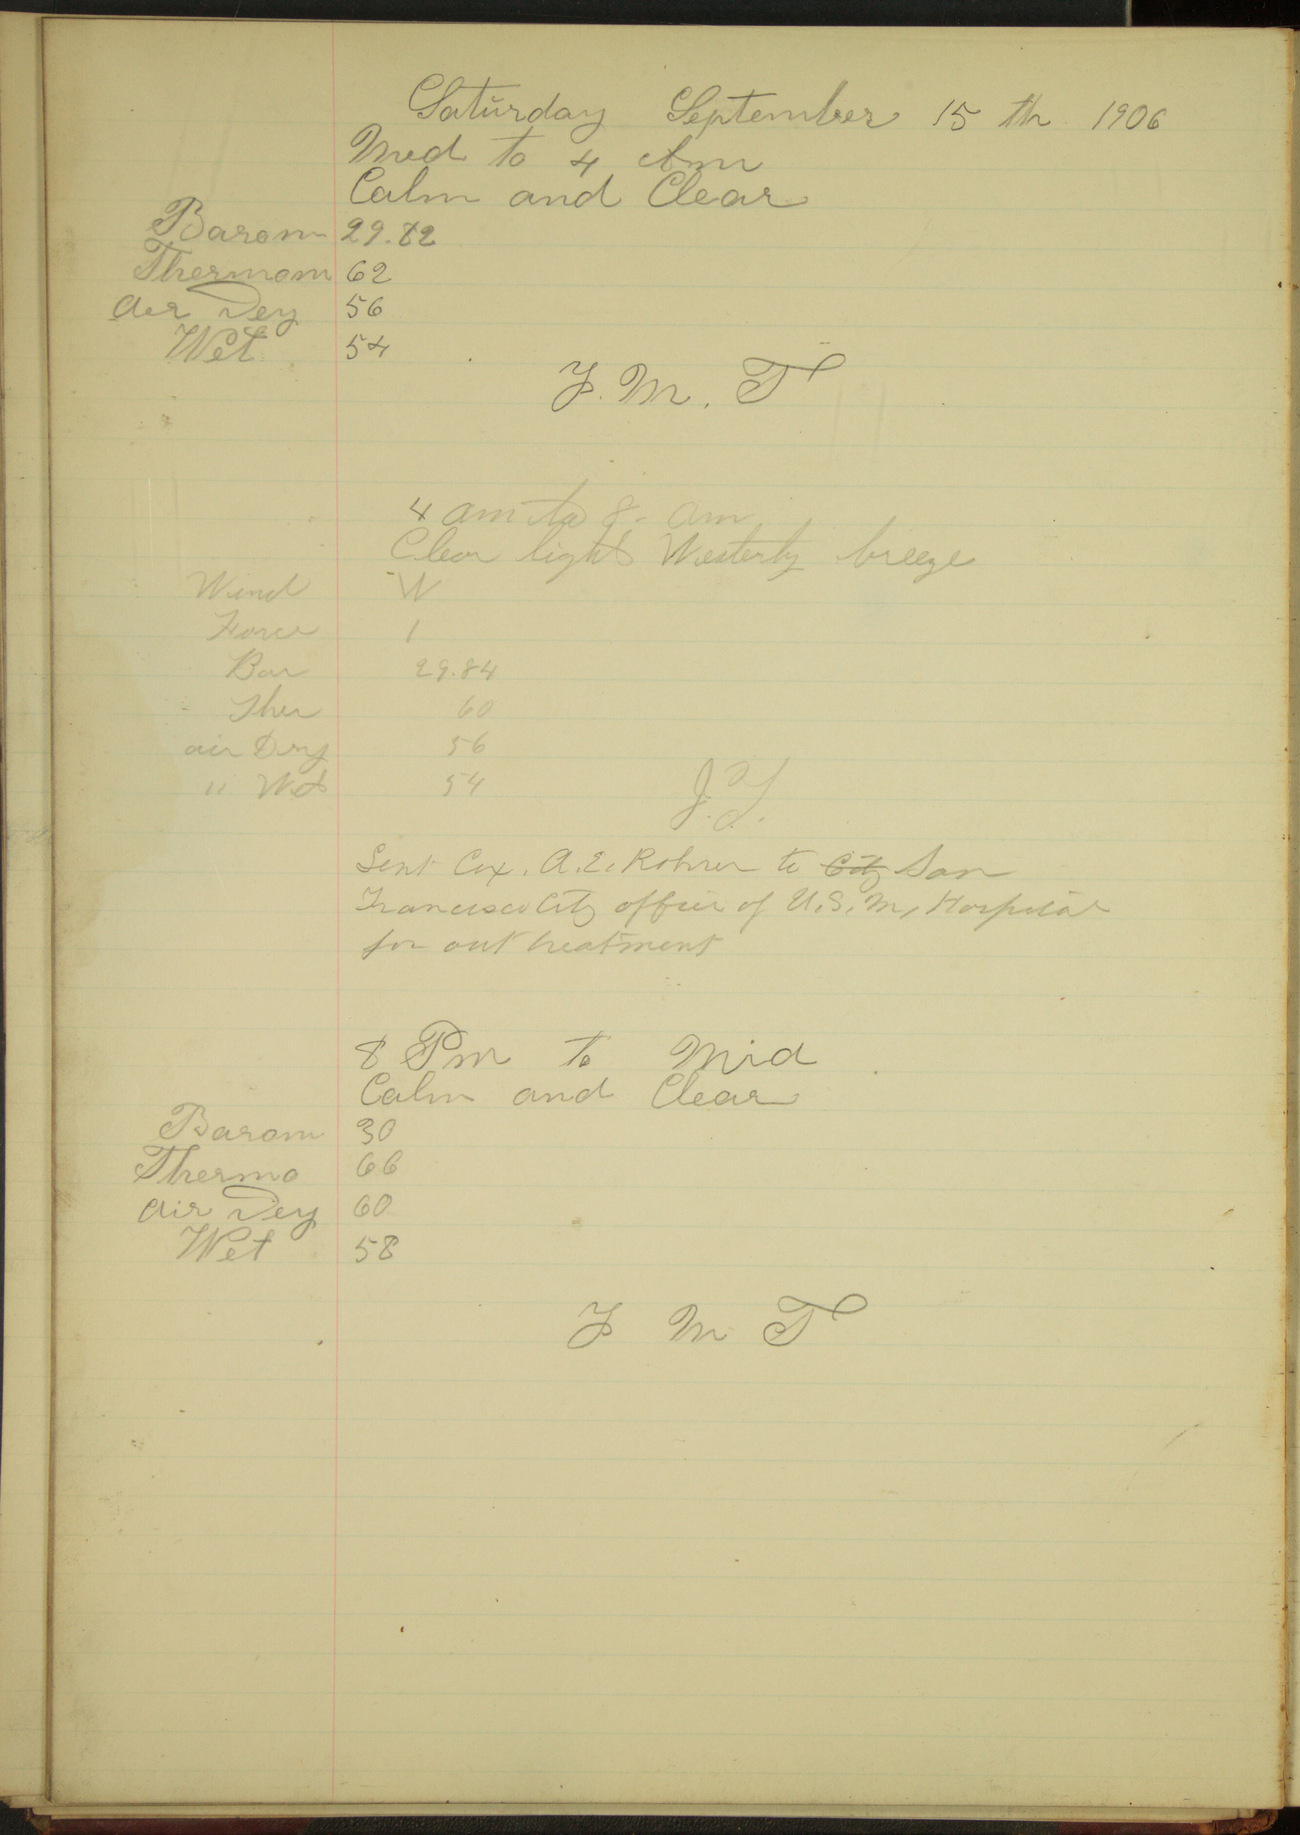 Saturday September 15 th 1906
Mid to 4 Am
Calm and Clear
Barom 29.82
Thermom 62
Air Dey 56
Wet 54
F. M. T
4 am to 8. am
Clear light Westerly breeze
Wind W
Force 1
Bar 29.84
Ther 60
air Dry 56
" Wet 54
J. Y.
Sent Cox. A. E. Rohrer to City San
Francisco City office of U. S. M, Hospital
for out treatment
8 Pm to Mid
Calm and Clear
Barom 30
Thermo 66
Air Dey 60
Wet 58
F M T